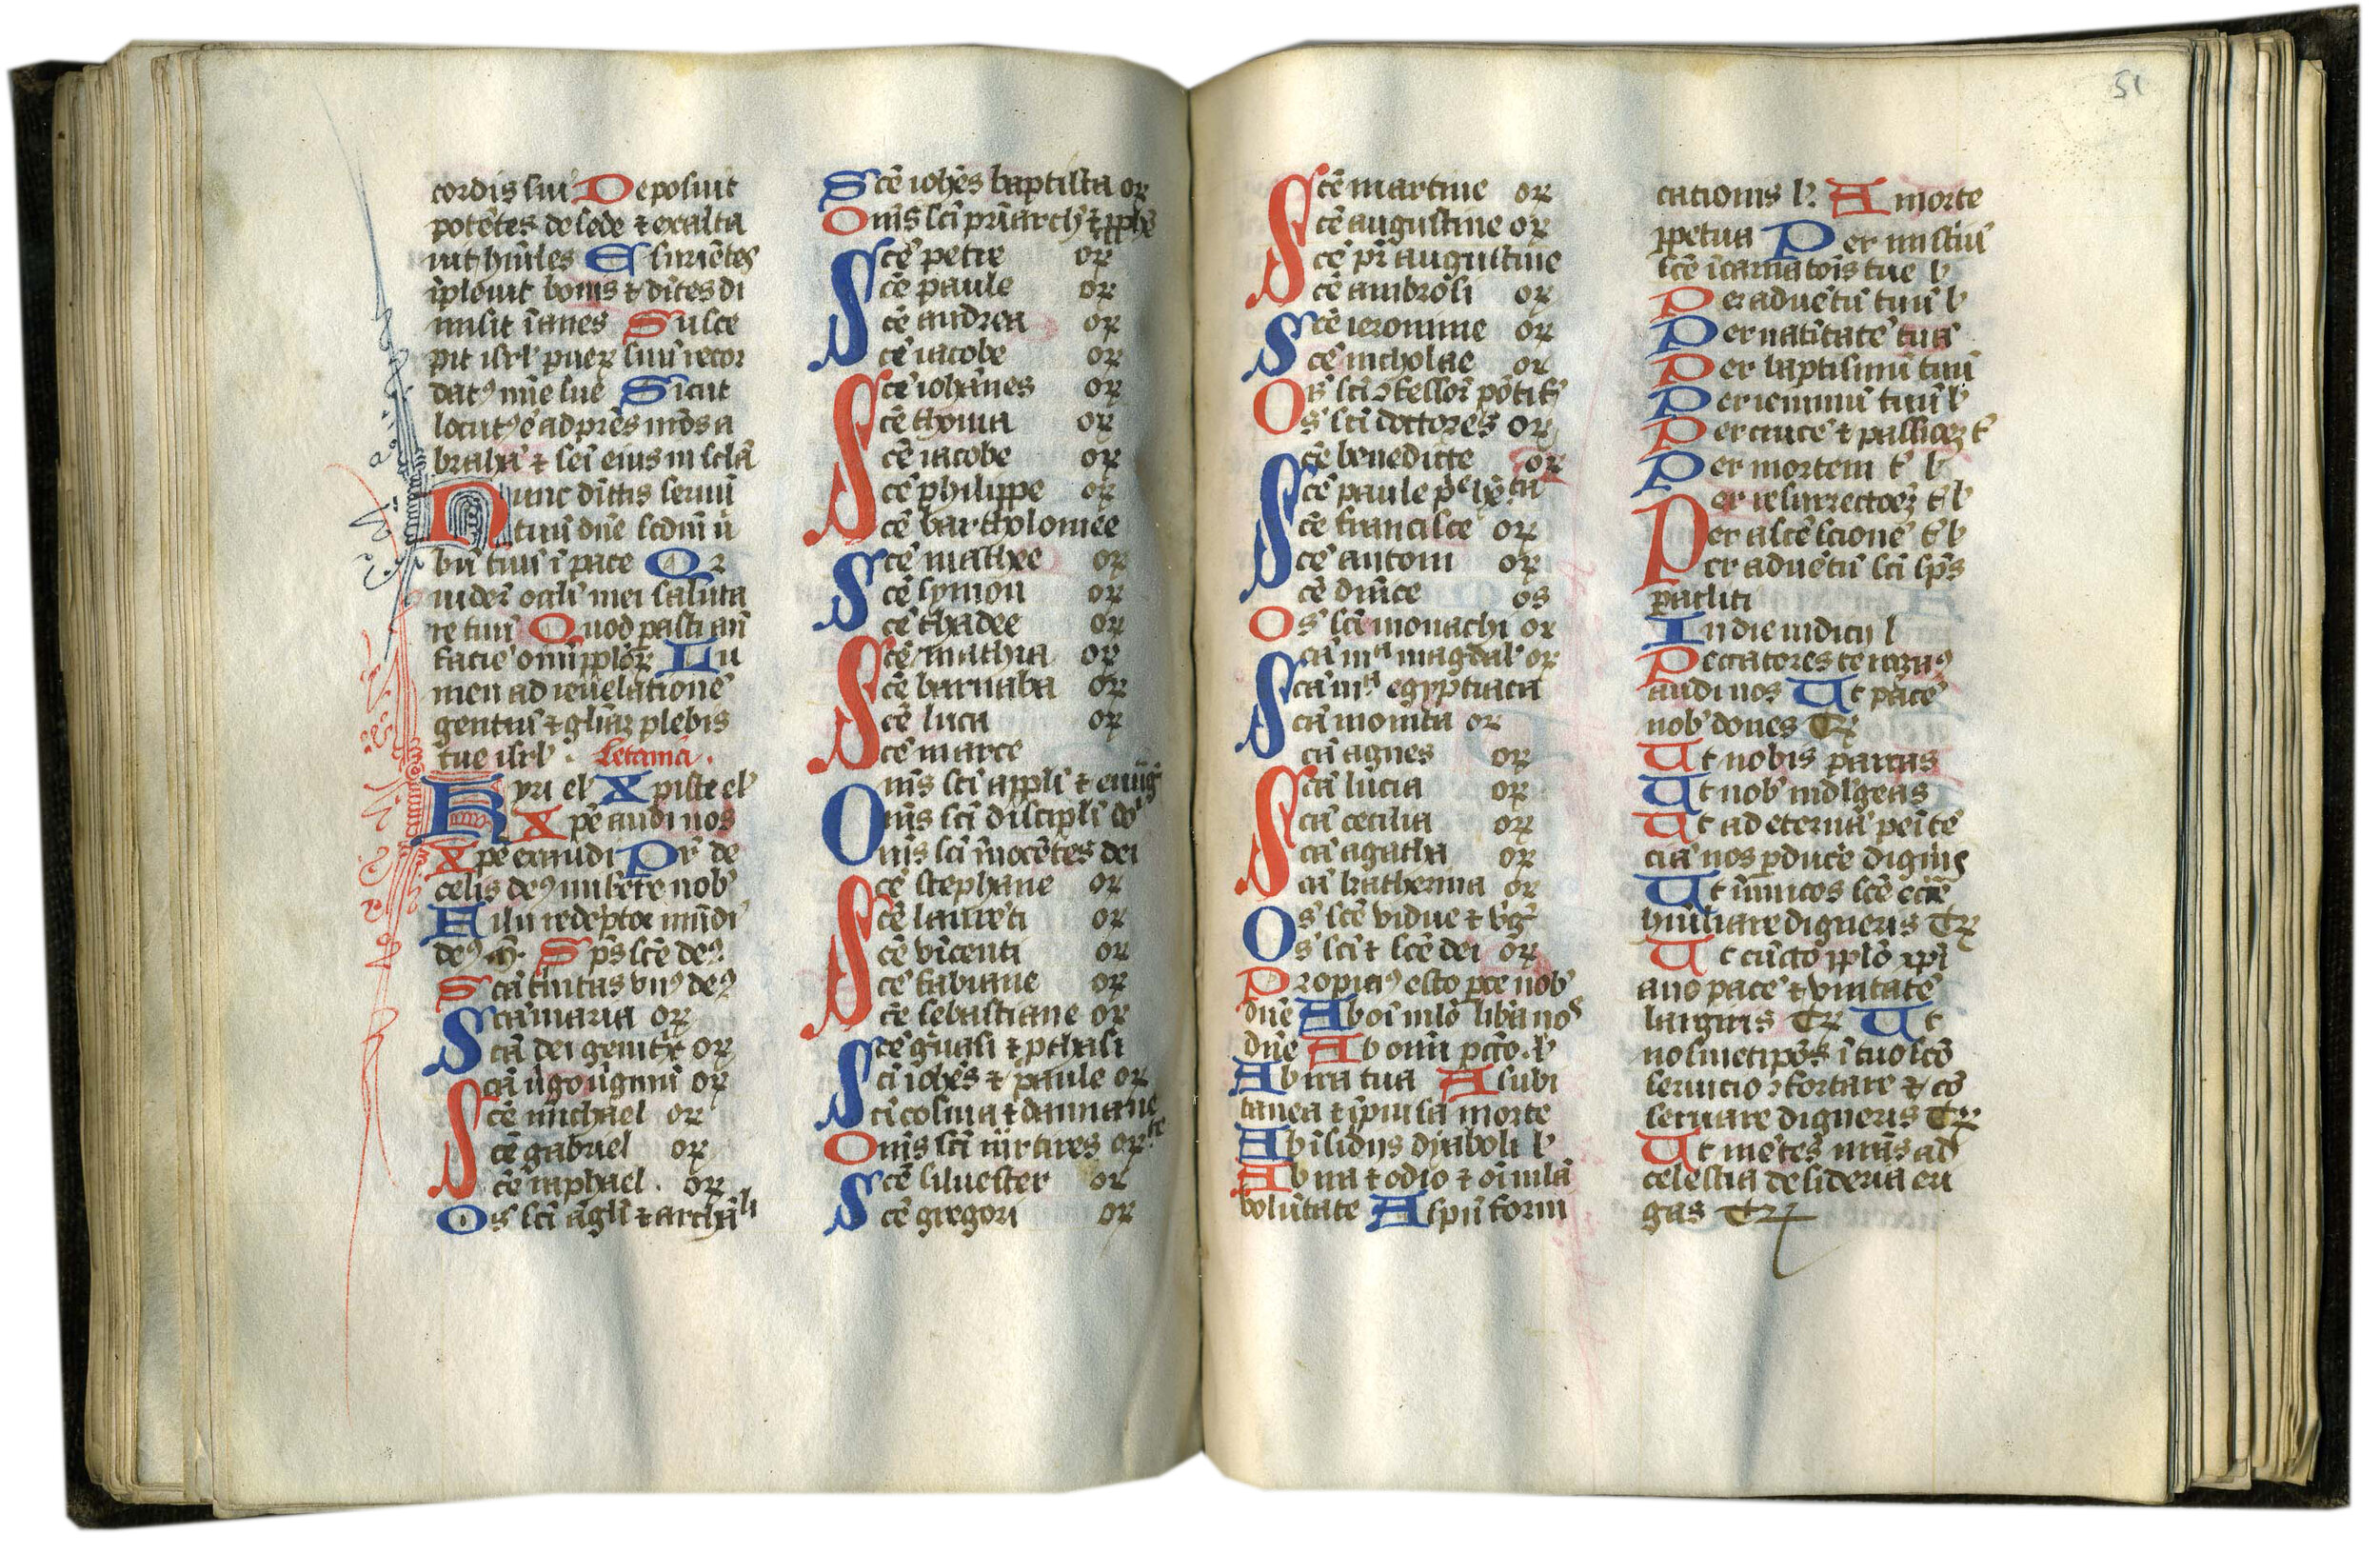 cordis sui Deposuit
potētes de sede ⁊ exalta
uit hūiles Esuriētes
īpleuit bonis ⁊ diītes di
misit īanes Susce
pit isrl̕ pueꝝ suū recor
datꝰ mīe sue Sicut
locutꝰ ē ad prēs nrōs a
brahā ⁊ seī eius in sclā
Nunc dīttis seruū
tuū dn̄e scd̄m ū
bū tuū ī pace Qꝛ
uiderī ocl̕i mei saluta
re tuū Quod pasti an̄
facie om̄ pplōꝝ Lu
men ad reuelationē
gentiū ⁊ gl̄iaꝫ plebis
tue isrl̕ . Letania .
Kyri el̕ Xpiste el̕
Xpē audi nos
Xpē exaudi Pr̄ de
celis deꝰ miserēre nob̕
Fili redēptor mūdi
deꝰ m̄. Sp̄s scē deꝰ
Scā tinitas vnꝰ deꝰ
Scā maria oꝝ
Scā dei genitx̄ oꝝ
Scā ūgo ūginū oꝝ
scē michael oꝝ
scē gabriel oꝝ
scē raphael . oꝝ
Os̄ scī āgl̕i ⁊ archāl̕i
Scē iohēs baptista oꝝ
Om̄s scī pr̄iarch̕ ⁊ pph̕e
Scē petre oꝝ
scē paule oꝝ
scē andrea oꝝ
scē iacobe oꝝ
Scē iohānes oꝝ
scē thoma oꝝ
scē iacobe oꝝ
scē philippe oꝝ
scē bartholomee
Scē mathee oꝝ
scē symon oꝝ
scē thadee oꝝ
Scē mathia oꝝ
scē barnaba oꝝ
scē luca oꝝ
scē marce
Om̄s scī appl̕i ⁊ euūg̕
om̄s scī discipl̕i do̕
om̄s scī īnocētes dei
Scē stephane oꝝ
scē laurēti oꝝ
scē vīcenti oꝝ
scē fabiane oꝝ
scē sebastiane oꝝ
Scē ḡuasi ⁊ pthasi
scī iohēs ⁊ paule oꝝ
scī cosma ⁊ damiane
Om̄s scī mr̄tires oꝝ te
Scē siluester oꝝ
scē gregori oꝝ
Scē martine oꝝ
scē augustine oꝝ
scē pr̄ augustine
scē ambrosi oꝝ
Scē ieronime oꝝ
scē nicholae oꝝ
Os̄ scī ꝯfessoꝝ pōtif̕
Os̄ scī doctores oꝝ
Scē benedicte oꝝ
scē paule p̄e hēita
scē francisce oꝝ
scē antoni oꝝ
scē dnīce os
Os̄ scī monachi or
Scā mᵃ magdal̕ oꝝ
scā mᵃ egyptiaca
scā monica or
scā agnes oꝝ
Scā lucia oꝝ
scā cecilia oꝝ
scā agatha oꝝ
scā katherina oꝝ
Os̄ scē vidue ⁊ vg̕
os̄ scī ⁊ scē dei oꝝ
Propitiꝰ esto pce nob̕
dn̄e Ab oī mlō libāa noˢ
dn̄e Ab omī pctō . l̕
Ab ira tua A subi
tanea ⁊ īpuisa morte
Ab īsidijs dyaboli l̕
Ab ira ⁊ odio ⁊ oī mlā
volūtate A spū forni
cationis l̕. A morte
ppetua Per misteriū
scē īcarnatōis tue l̕
Per aduētū tuū l̕
Per natitatē tuā
Per baptismū tuū
Per ieiuniū tuū l̕
Per crucē ⁊ passioeꝫ t̕
Per mortem t̕ l̕
Per resurrectoeꝫ t̕ l̕
Per ascēscionē t̕ l̕
Per aduētū scī sps̄
paracliti
In die iudicij l̕
Peccatores te rogamꝰ
audi nos Ut pacē
nob̕ dones Tꝝ
Ut nobis parcas
Ut nob̕ indl̕geas
Ut ad eternā peītē
ciā nos pducē digīis
Ut inīmicos scē ecc̄e
hūiliare digneris Tꝝ
Ut cūcto pplō xpi
ano pacē ⁊ vnitatē
largiris Tꝝ Ut
nosmetipōs ī tuo scō
seruicio ꝯfortare ⁊ cō
seruare digneris Tꝝ
Ut mētes nr̄as ad
celestia desideria eri
gas Tꝝ
51